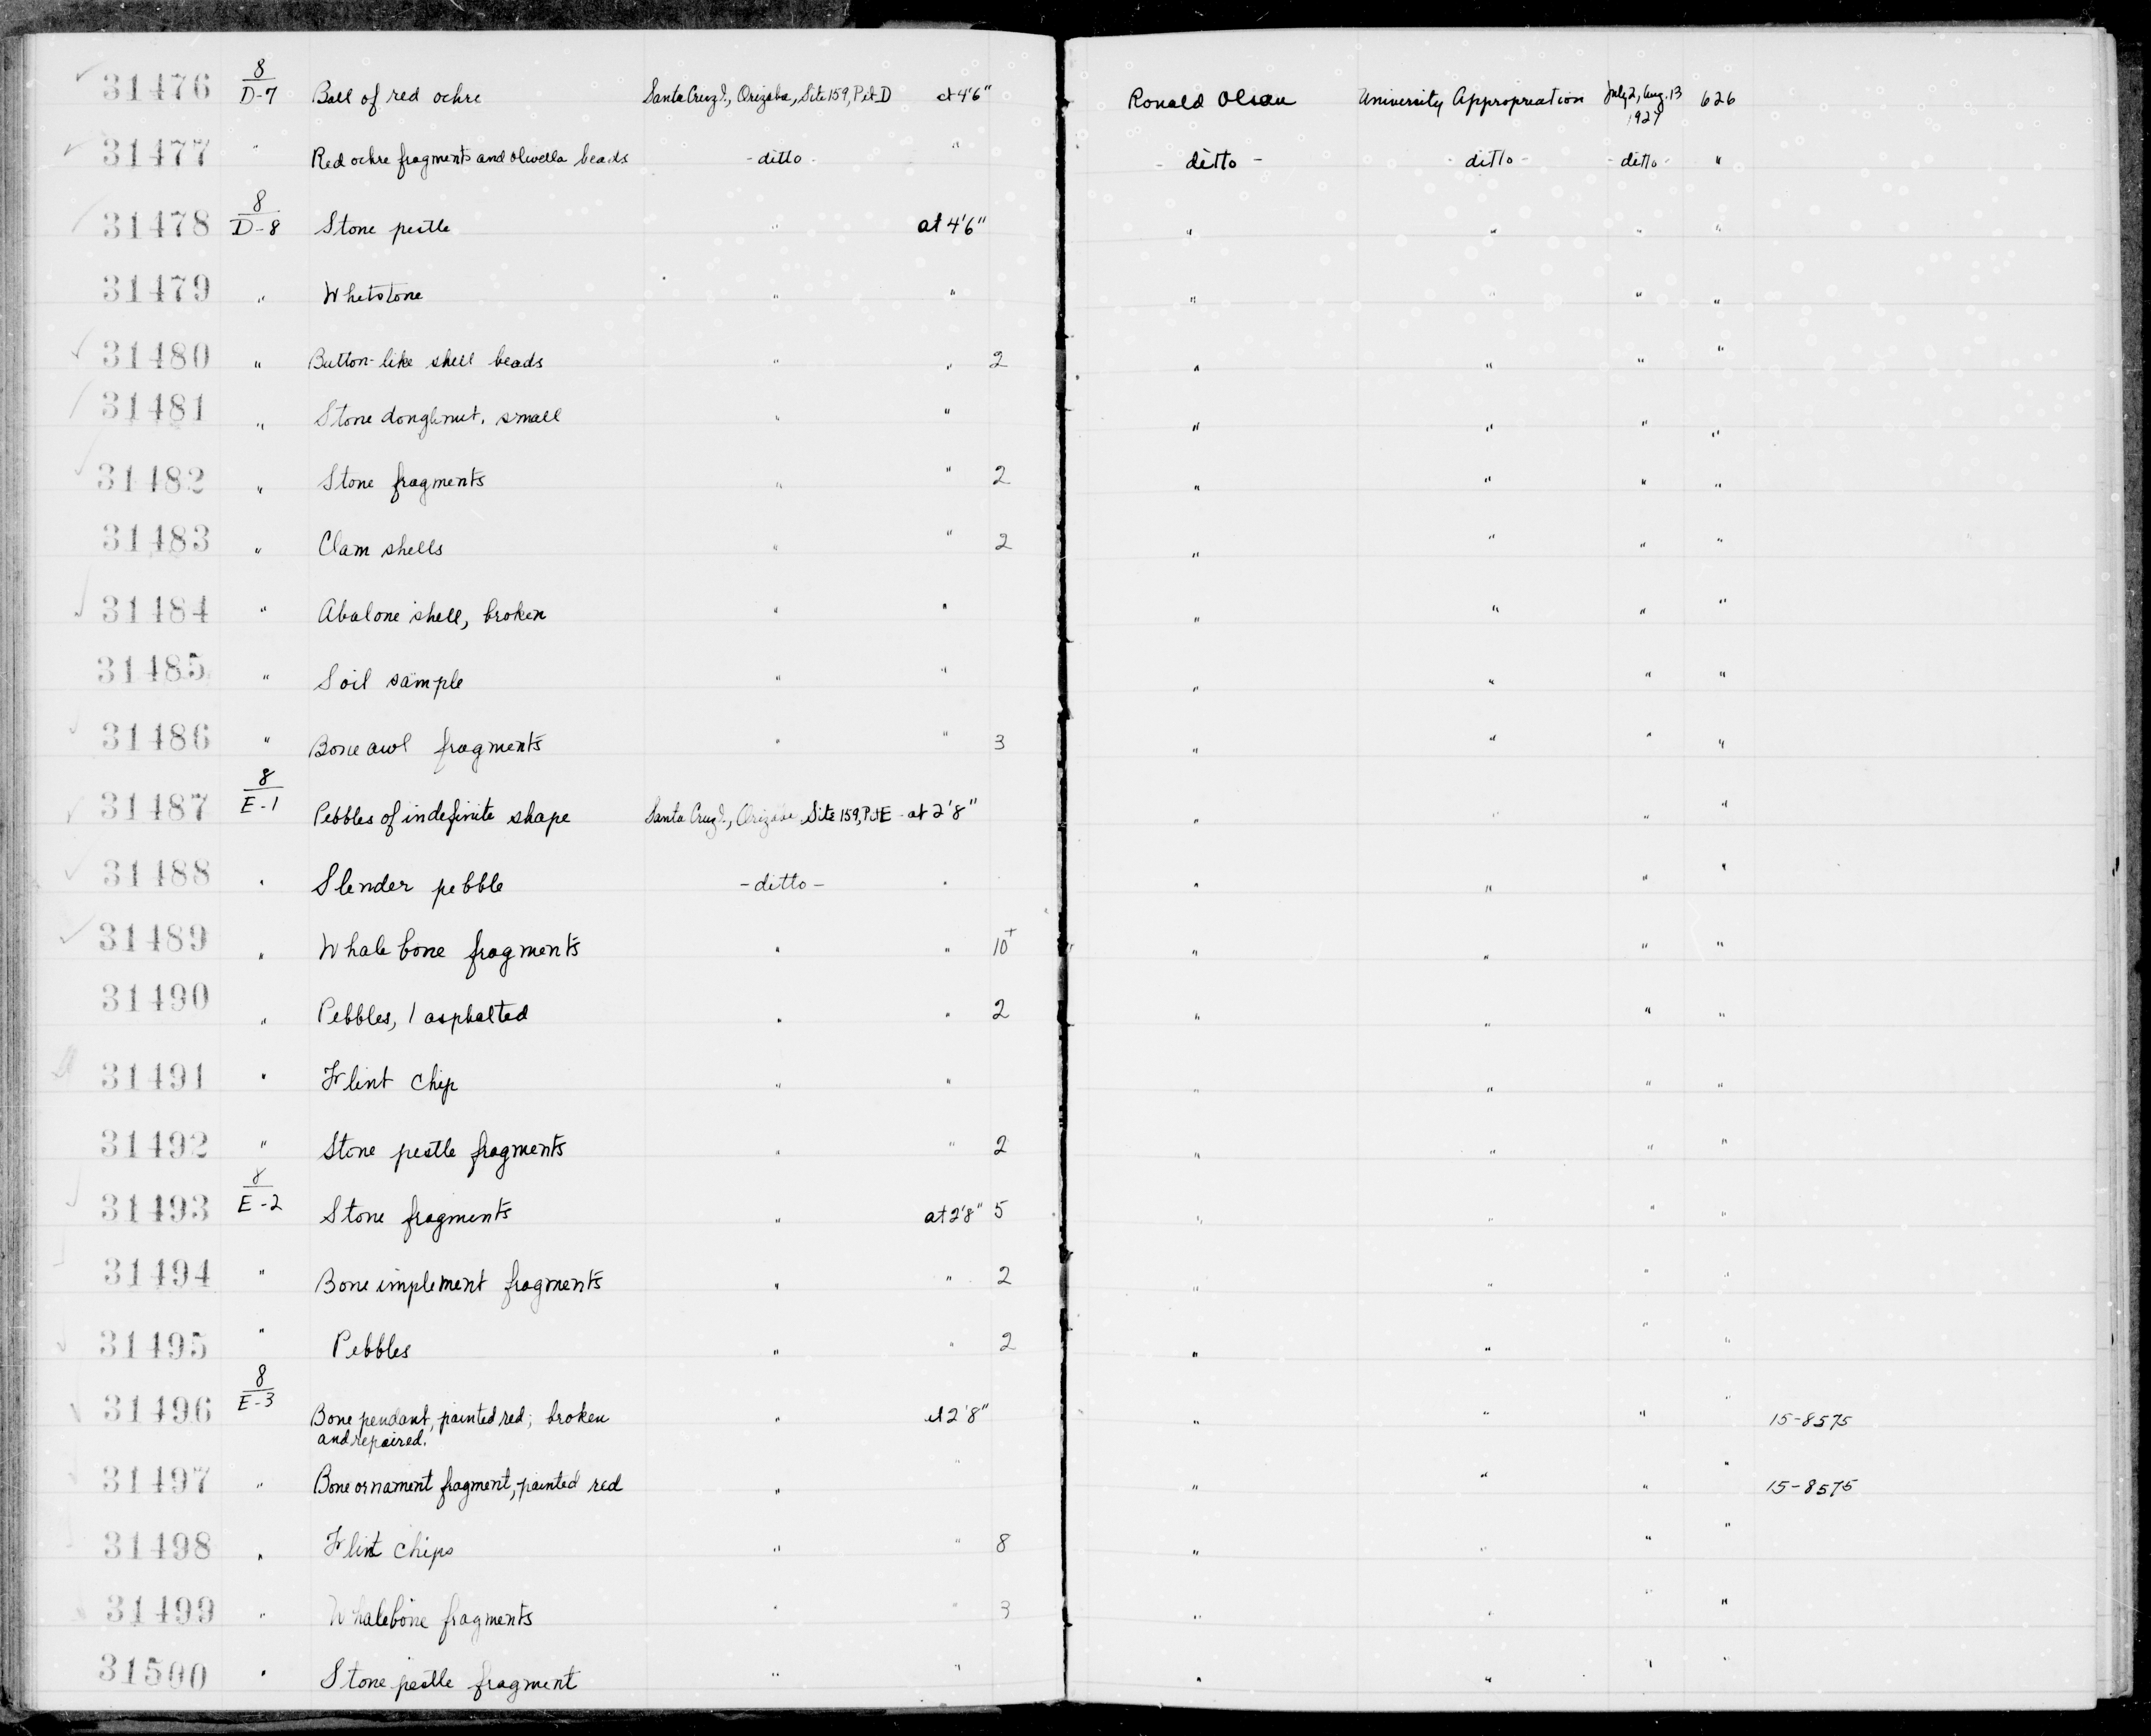 31476 8/D-7 Ball of red ochre Santa Cruz I., Orizaba, Site 159, Pit D at 4'6" Ronald Olson University Appropriation July 2, Aug. 13 1927 626
31477 " Red ochre fragments and olivella beads - ditto - " - ditto - - ditto - - ditto - "
31478 8/D-8 Stone pestle " at 4'6" " " " "
31479 " Whetstone " " " " " "
31480 " Button-like shell beads " " 2 " " " "
31481 " Stone doughnut, small " " " " " "
31482 " Stone fragments " " 2 " " " "
31483 " Clam shells " " 2 " " " "
31484 " Abalone shell, broken " " " " " "
31485 " Soil sample " " " " " "
31486 " Bone awl fragments " " 3 " " " "
31487 8/E-1 Pebbles of indefinite shape Santa Cruz I., Orizaba, Site 159, Pit E - at 2'8" " " " "
31488 " Slender pebble - ditto - " " " " "
31489 " Whale bone fragments " " 10+ " " " "
31490 " Pebbles, 1 asphalted " " 2 " " " "
31491 " Flint chip " " " " " "
31492 " Stone pestle fragments " " 2 " " " "
31493 8/E-2 Stone fragments " at 2'8" 5 " " " "
31494 " Bone implement fragments " " 2 " " " "
31495 " Pebbles " " 2 " " " "
31496 8/E-3 Bone pendant, painted red; broken " at 2'8" " " " " 15-8575
and repaired.
31497 " Bone ornament fragment, painted red " " " " " " 15-8575
31498 " Flint chips " " 8 " " " "
31499 " Whalebone fragments " " 3 " " " "
31500 " Stone pestle fragment " " " " " "